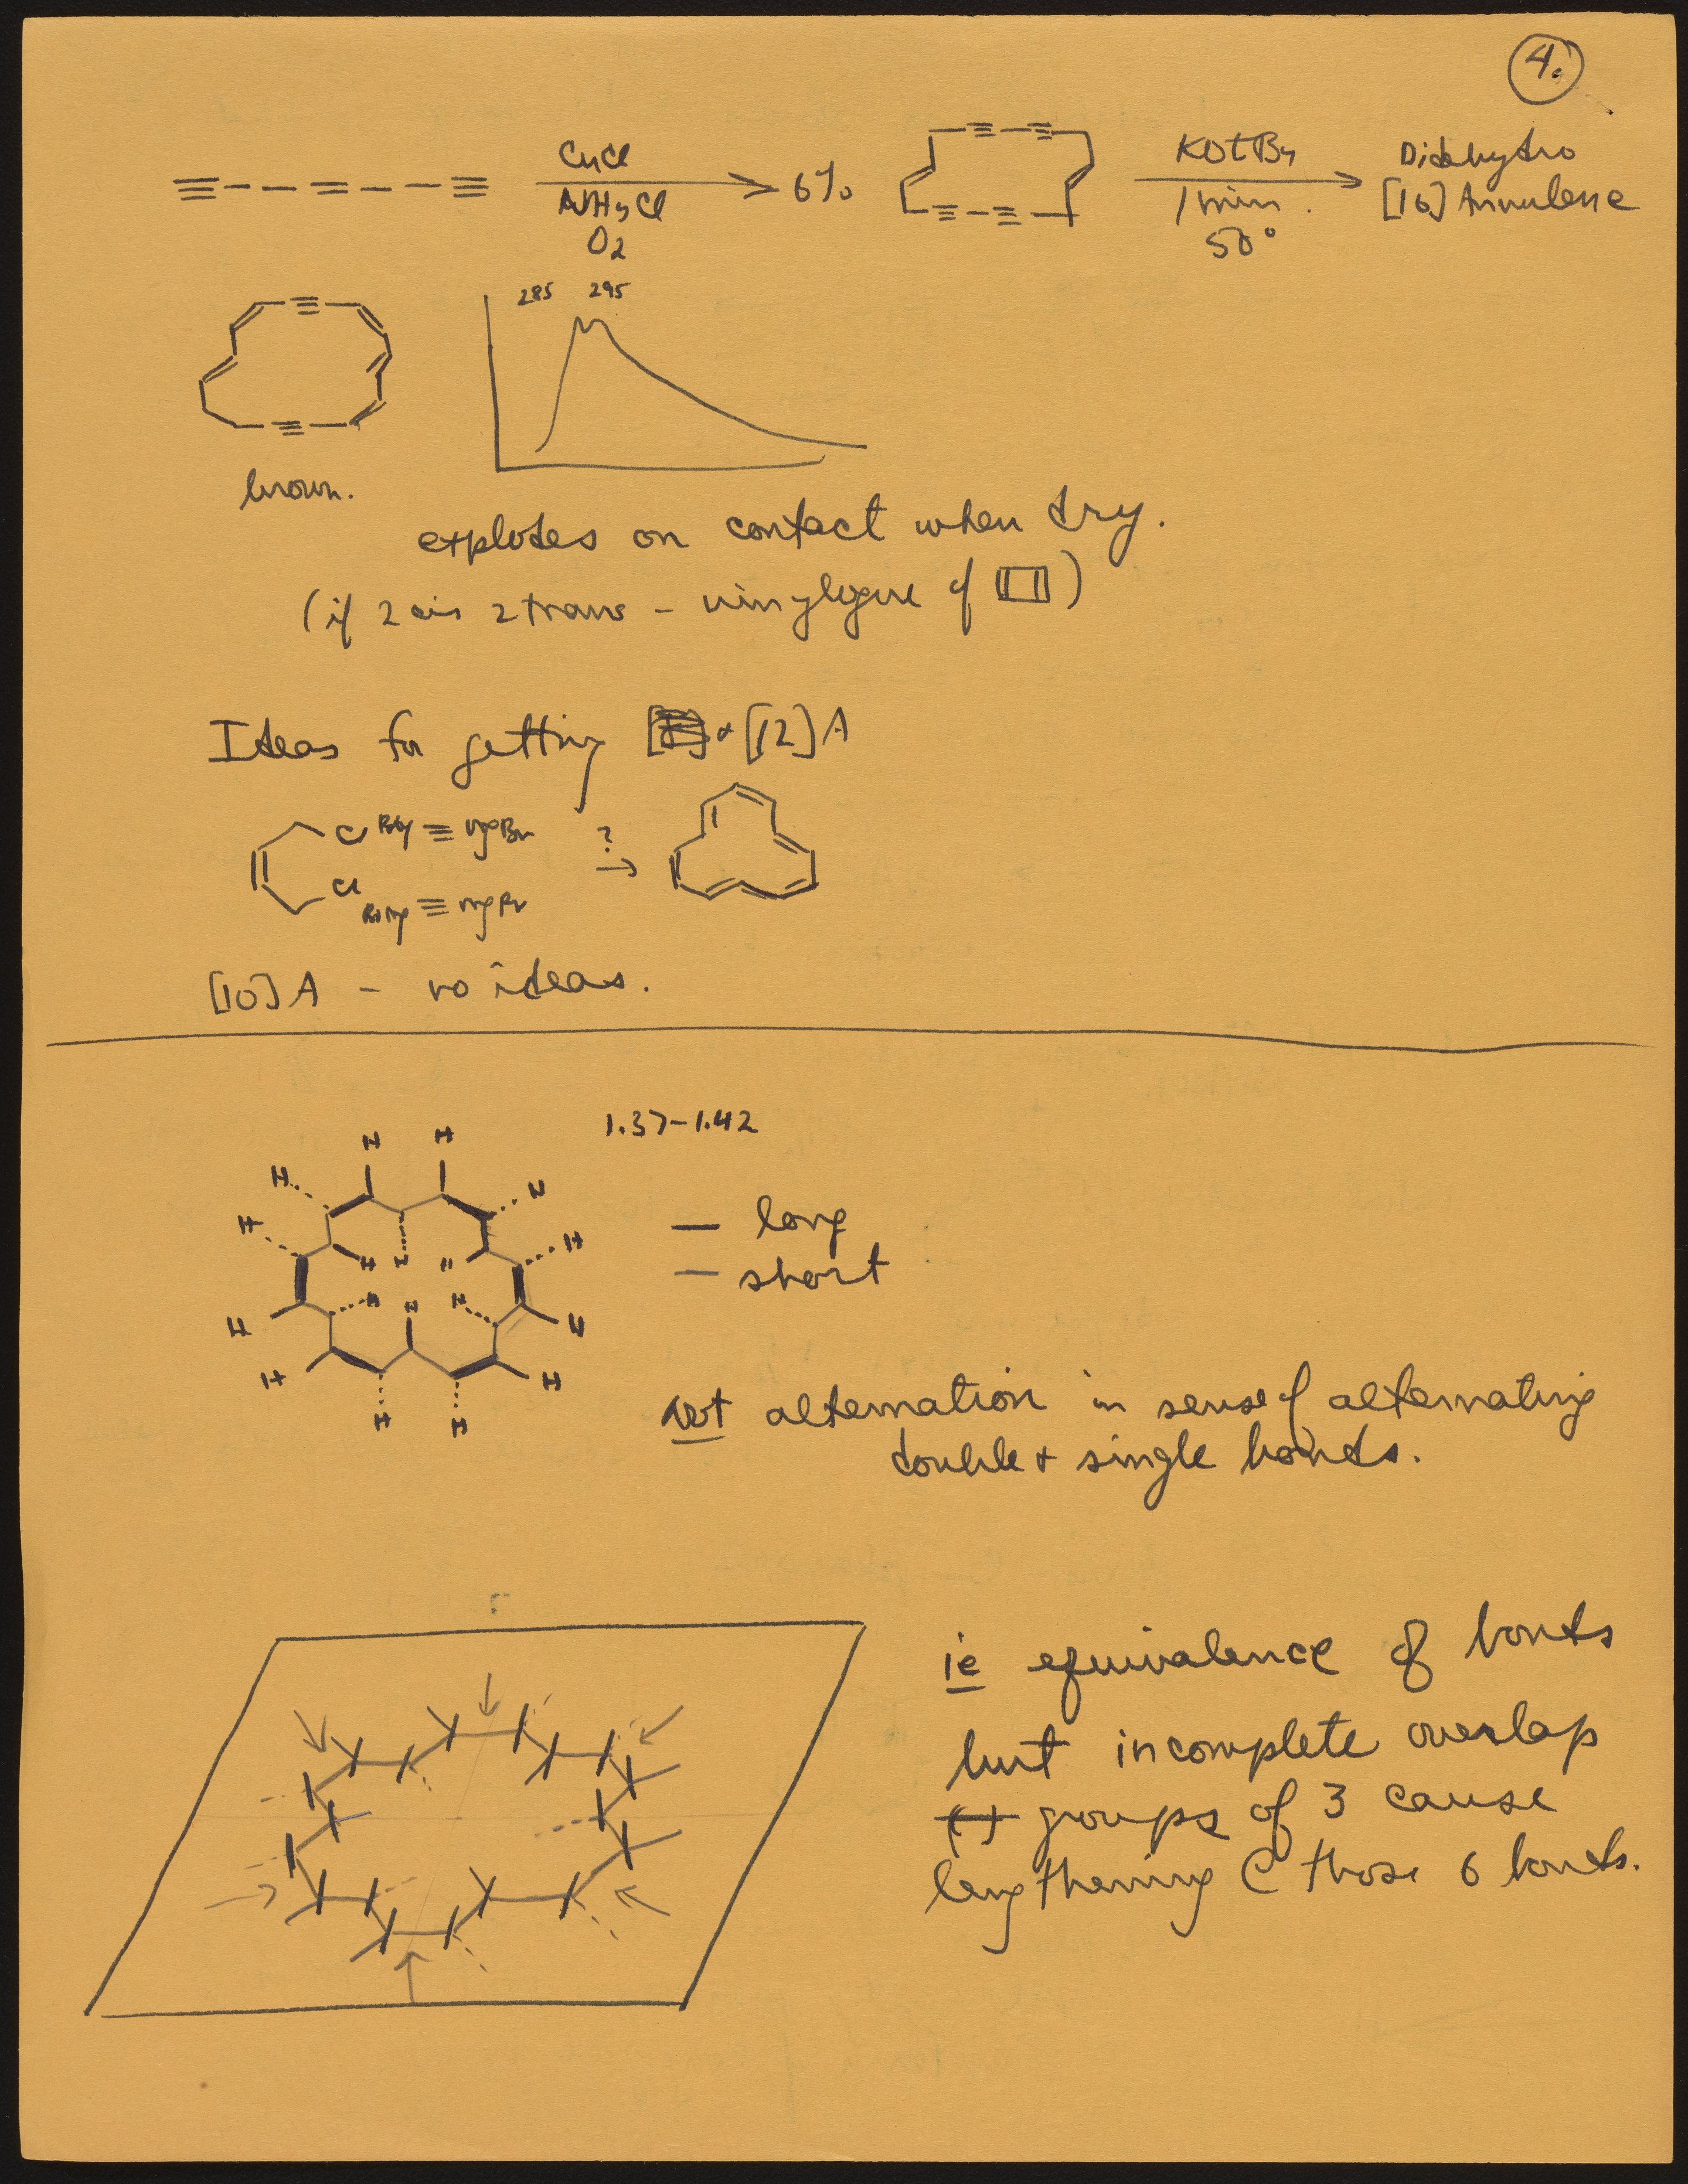 4.
CuCl
NH4Cl
O2
6%
KOtBu
1 min.
50°
Didehydro
[16] Annulene
285 295
brown.
explodes on contact when dry.
(if 2 cis 2 trans - vinylogue of )
Ideas for getting [12] A
Cl BrMg ≡ MgBr
?
Cl
BrMg ≡ MgBr
[10] A - no ideas.
1.37-1.42
H H
H H
H H
H H H
H H H
H H
H H
H H
— long
— short
not alternation in sense of alternating
double + single bonds.
ie equivalence of bonds
but incomplete overlap
groups of 3 cause
lengthening C those 6 bonds.